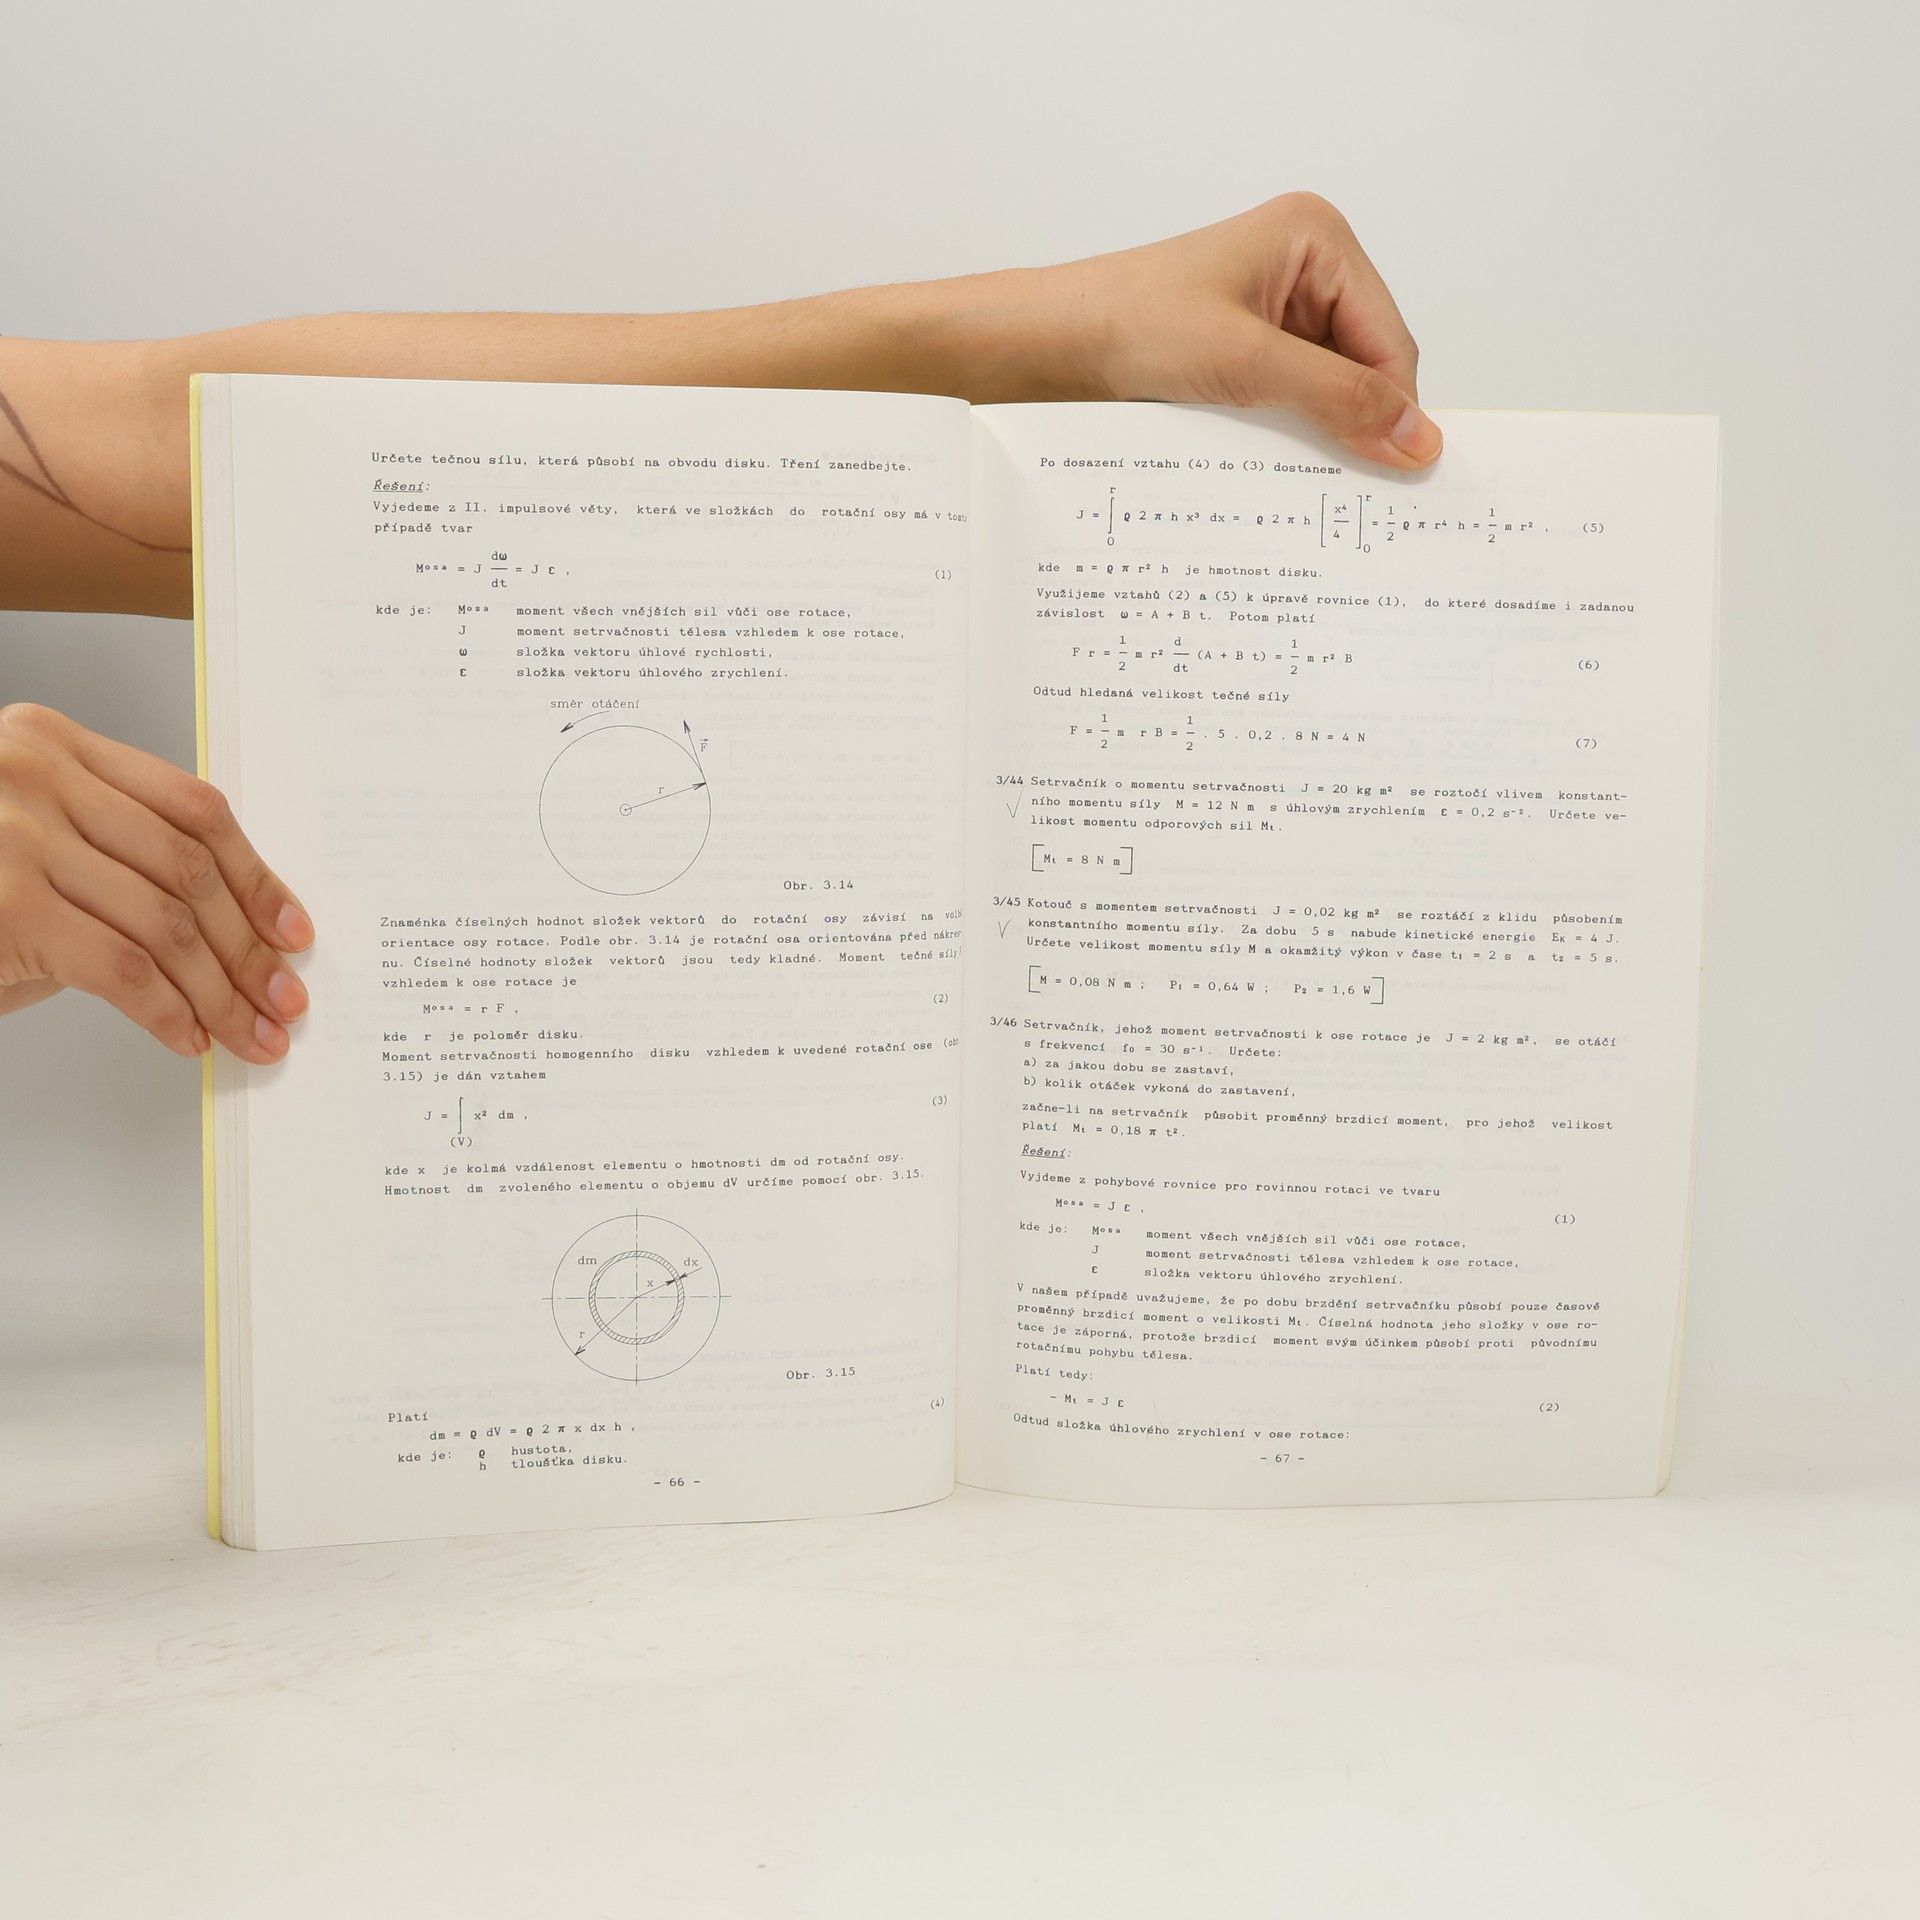 Určete tečnou sílu, která působí na obvodu disku. Tření zanedbejte.
Řešení:
Vyjedeme z II. impulsové věty, která ve složkách do rotační osy má v
případě tvar
Mosa = J dω/dt = J ε , (1)
kde je: Mosa moment všech vnějších sil vůči ose rotace,
J moment setrvačnosti tělesa vzhledem k ose rotace,
ω složka vektoru úhlové rychlosti,
ε složka vektoru úhlového zrychlení.
směr otáčení
F
r
Obr. 3.14
Znaménka číselných hodnot složek vektorů do rotační osy závisí na
orientace osy rotace. Podle obr. 3.14 je rotační osa orientována před
nu. Číselné hodnoty složek vektorů jsou tedy kladné. Moment tečné síly
vzhledem k ose rotace je
Mosa = r F , (2)
kde r je poloměr disku.
Moment setrvačnosti homogenního disku vzhledem k uvedené rotační ose
3.15) je dán vztahem
J = ∫(V) x² dm , (3)
kde x je kolmá vzdálenost elementu o hmotnosti dm od rotační osy.
Hmotnost dm zvoleného elementu o objemu dV určíme pomocí obr. 3.15.
dm dx
x
r
Obr. 3.15
Platí
dm = ϱ dV = ϱ 2 π x dx h , (4)
kde je: ϱ hustota,
h tloušťka disku.
- 66 -
Po dosazení vztahu (4) do (3) dostaneme
J = ∫0r ϱ 2 π h x³ dx = ϱ 2 π h [x⁴/4]0r = 1/2 ϱ π r⁴ h = 1/2 m r² , (5)
kde m = ϱ π r² h je hmotnost disku.
Využijeme vztahů (2) a (5) k úpravě rovnice (1), do které dosadíme i zadanou
závislost ω = A + B t. Potom platí
F r = 1/2 m r² d/dt (A + B t) = 1/2 m r² B (6)
Odtud hledaná velikost tečné síly
F = 1/2 m r B = 1/2 . 5 . 0,2 . 8 N = 4 N (7)
3/44 Setrvačník o momentu setrvačnosti J = 20 kg m² se roztočí vlivem konstant-
ního momentu síly M = 12 N m s úhlovým zrychlením ε = 0,2 s⁻². Určete ve-
likost momentu odporových sil Mt.
[Mt = 8 N m]
3/45 Kotouč s momentem setrvačnosti J = 0,02 kg m² se roztáčí z klidu působením
konstantního momentu síly. Za dobu 5 s nabude kinetické energie EK = 4 J.
Určete velikost momentu síly M a okamžitý výkon v čase t₁ = 2 s a t₂ = 5 s.
[M = 0,08 N m ; P₁ = 0,64 W ; P₂ = 1,6 W]
3/46 Setrvačník, jehož moment setrvačnosti k ose rotace je J = 2 kg m², se otáčí
s frekvencí f₀ = 30 s⁻¹. Určete:
a) za jakou dobu se zastaví,
b) kolik otáček vykoná do zastavení,
začne-li na setrvačník působit proměnný brzdicí moment, pro jehož velikost
platí Mt = 0,18 π t².
Řešení:
Vyjdeme z pohybové rovnice pro rovinnou rotaci ve tvaru
Mosa = J ε , (1)
kde je: Mosa moment všech vnějších sil vůči ose rotace,
J moment setrvačnosti tělesa vzhledem k ose rotace,
ε složka vektoru úhlového zrychlení.
V našem případě uvažujeme, že po dobu brzdění setrvačníku působí pouze časově
proměnný brzdicí moment o velikosti Mt. Číselná hodnota jeho složky v ose ro-
tace je záporná, protože brzdicí moment svým účinkem působí proti původnímu
rotačnímu pohybu tělesa.
Platí tedy:
- Mt = J ε (2)
Odtud složka úhlového zrychlení v ose rotace:
- 67 -